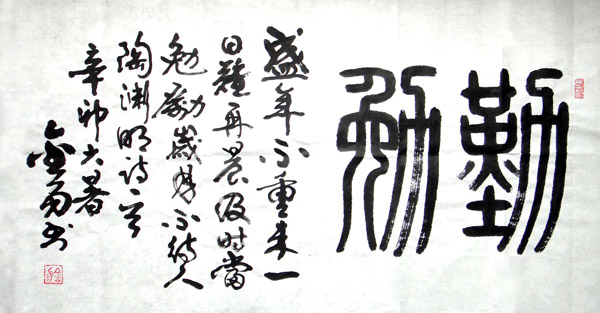 勤勉
盛年不重来一
日難再晨及时當
勉励歲月不待人
陶渊明诗
辛卯大暑
书